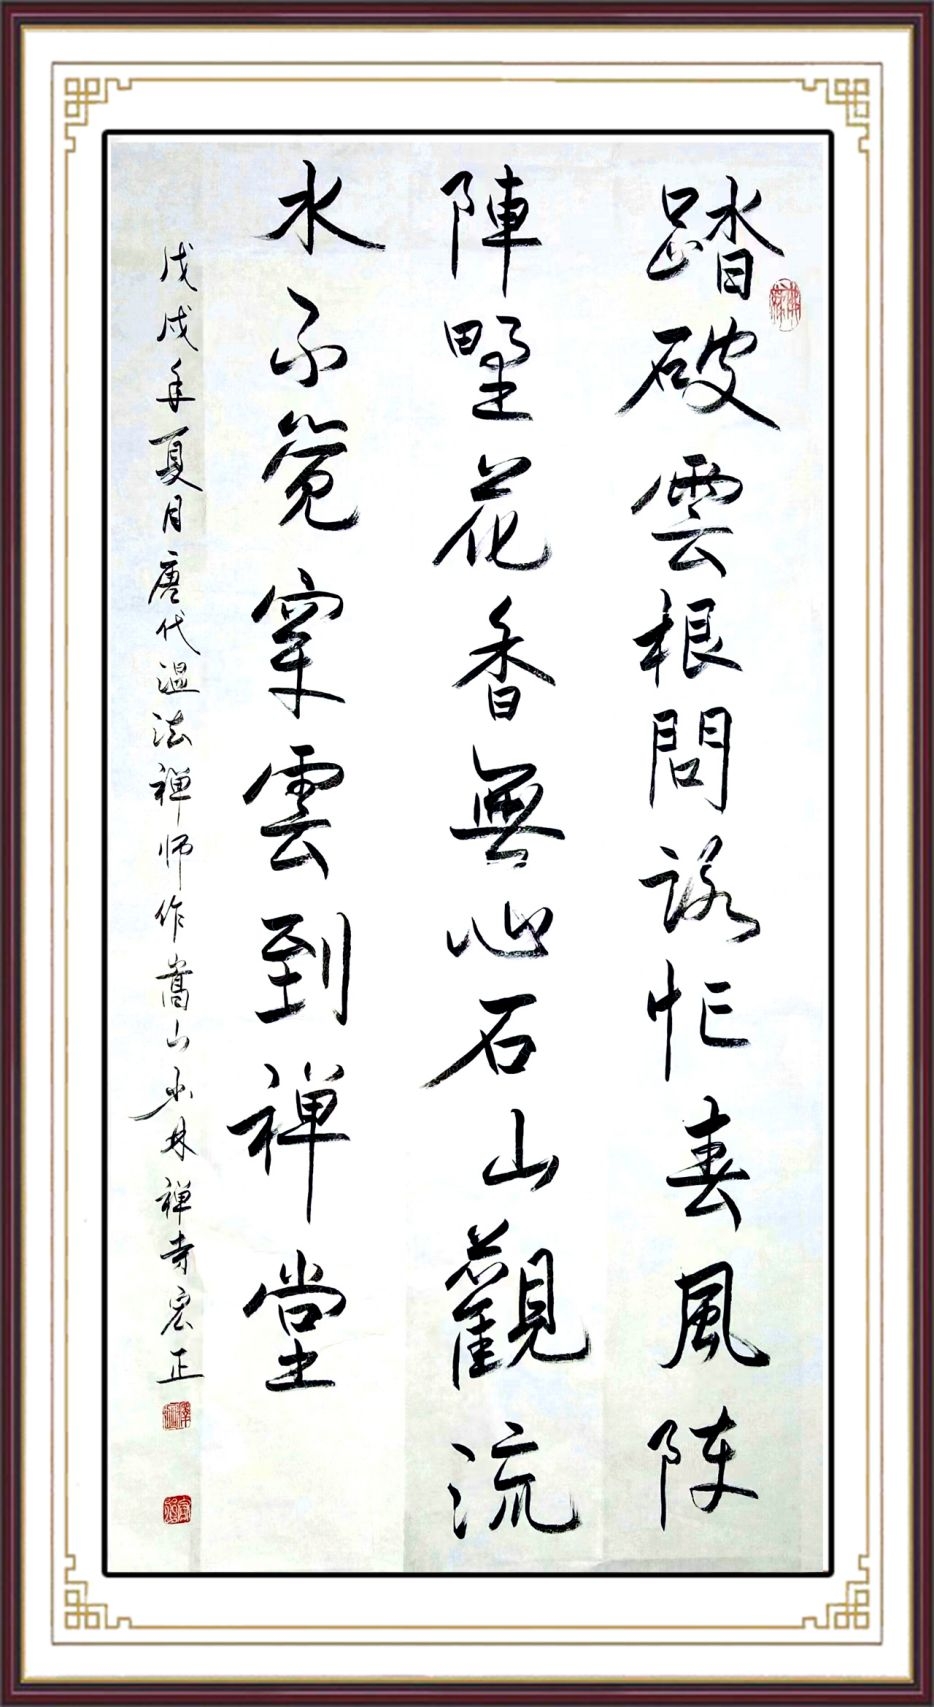 踏破雲根問路忙春風阵
陣野花香無心石山觀流
水不觉穿雲到禅堂
戊戌年夏月唐代温法禅师作嵩山少林禅寺宏正